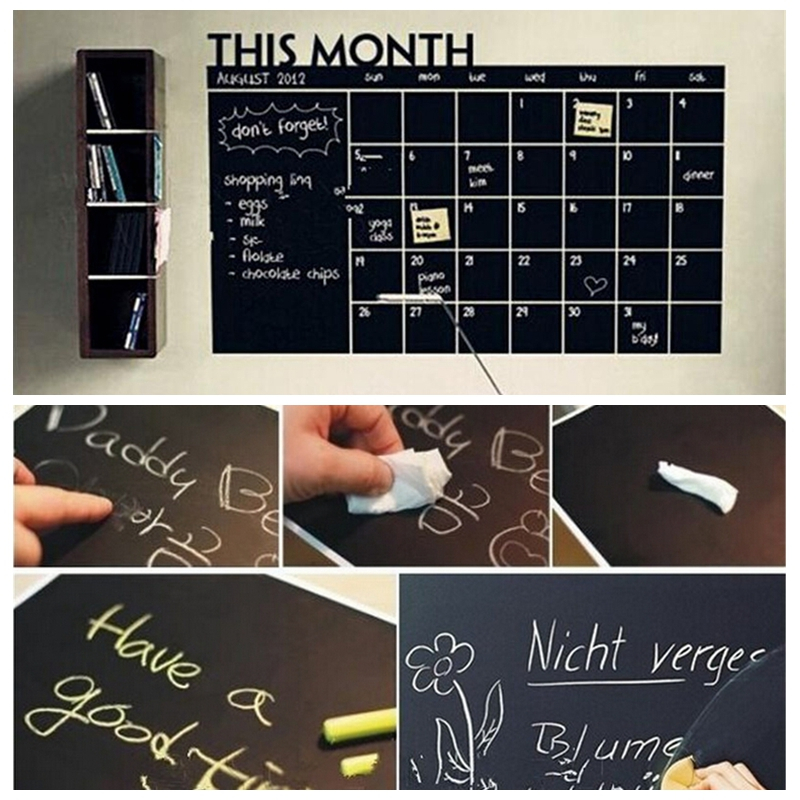 THIS MONTH
AUGUST 2012 sun mon tue wed thu fri sat
1 2 3 4
don't forget!
5 6 7 8 9 10 11
meet kim
dinner
shopping
- eggs
- milk
- chocolate chips
13 14 15 16 17 18
yoga class
19 20 21 22 23 24 25
piano lesson
26 27 28 29 30 31
my b'day!
Daddy Be
Daddy Be
Have a
good
Nicht verges
Blume